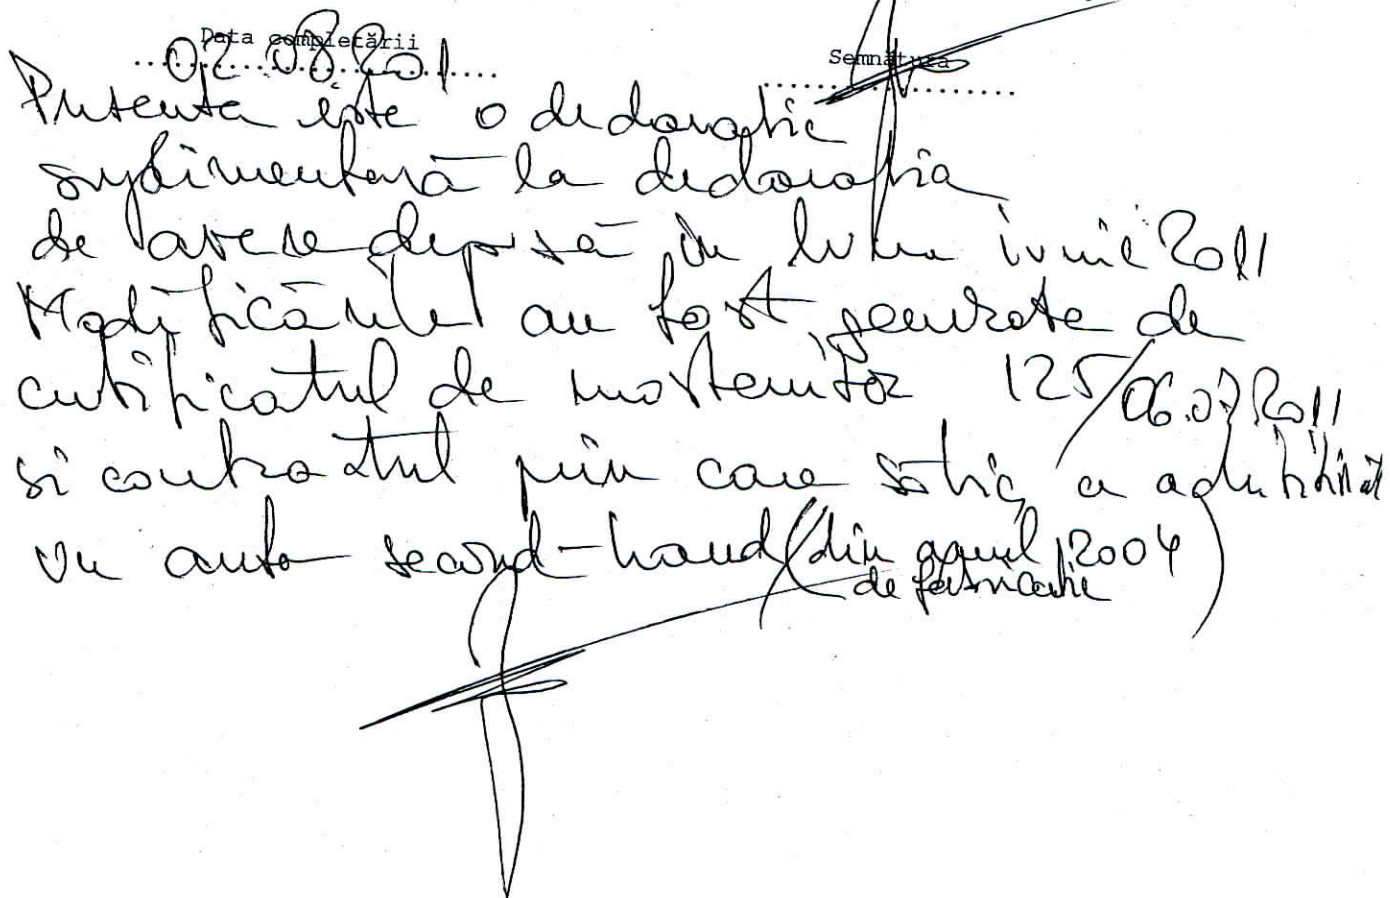 Data completării
Semnătura
02.08.201
Prezenta este o declarație
suplimentară la declarația
de avere depusă în luna iunie 2011
Modificările au fost generate de
certificatul de moștenitor 125/06.07.2011
și contractul prin care soția a achiziționat
un auto second-hand (din anul 2004)
de fabricație